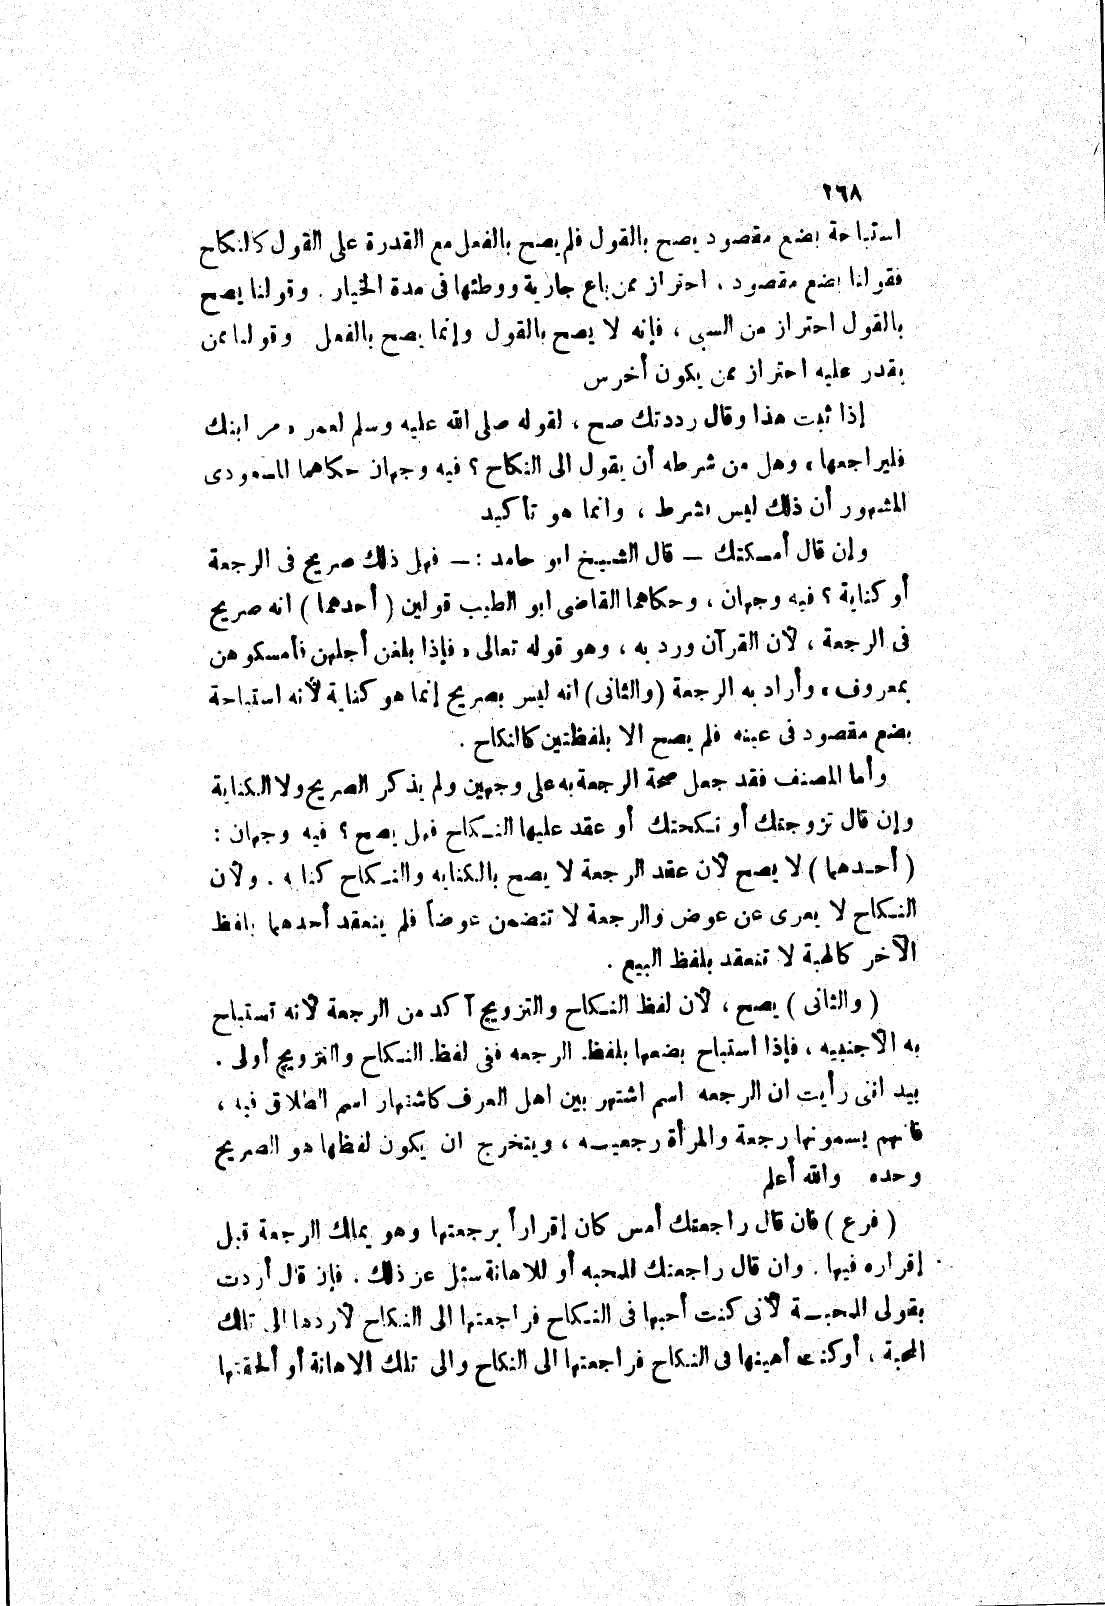 ٢٦٨
استباحة بضع مقصود يصح بالقول فلم يصح بالفعل مع القدرة على القول كالنكاح
فقولنا بضع مقصود ، احتراز ممن باع جارية ووطئها فى مدة الخيار . وقولنا يصح
بالقول احتراز من السبى ، فإنه لا يصح بالقول وإنما يصح بالفعل وقولنا ممن
يقدر عليه احتراز ممن يكون أخرس
إذا ثبت هذا وقال رددتك صح ، لقوله صلى الله عليه وسلم لعمر « مر ابنك
فليراجعها » وهل من شرطه أن يقول الى النكاح ؟ فيه وجهان حكاهما المسعودى
المشهور أن ذلك ليس بشرط ، وانما هو تأكيد
وإن قال أمسكتك – قال الشيخ ابو حامد : – فهل ذلك صريح فى الرجعة
أو كناية ؟ فيه وجهان ، وحكاهما القاضى ابو الطيب قولين ( أحدهما ) انه صريح
فى الرجعة ، لأن القرآن ورد به ، وهو قوله تعالى « فإذا بلغن أجلهن فأمسكوهن
بمعروف » وأراد به الرجعة (والثانى) انه ليس بصريح إنما هو كناية لأنه استباحة
بضع مقصود فى عينه فلم يصح الا بلفظتين كالنكاح .
وأما المصنف فقد جعل صحة الرجعة به على وجهين ولم يذكر الصريح ولا الكناية
وإن قال تزوجتك أو نكحتك أو عقد عليها النكاح فهل يصح ؟ فيه وجهان :
( أحدهما ) لا يصح لأن عقد الرجعة لا يصح بالكنايه والنكاح كنايه . ولأن
النكاح لا يعرى عن عوض والرجعة لا تتضمن عوضاً فلم ينعقد أحدهما بلفظ
الآخر كالهبة لا تنعقد بلفظ البيع .
( والثانى ) يصح ، لأن لفظ النكاح والتزويج آكد من الرجعة لأنه تستباح
به الأجنبيه ، فإذا استباح بضعها بلفظ الرجعه ففى لفظ النكاح والتزويج أولى .
بيد اننى رأيت ان الرجعه اسم اشتهر بين اهل العرف كاشتهار اسم الطلاق فيه ،
فانهم يسمونها رجعة والمرأة رجعيه ، ويتخرج ان يكون لفظها هو الصريح
وحده والله أعلم
( فرع ) فان قال راجعتك أمس كان إقراراً برجعتها وهو يملك الرجعة قبل
إقراره فيها . وان قال راجعتك للمحبه أو للاهانة سئل عن ذلك . فإن قال أردت
بقولى المحبة لأنى كنت أحبها فى النكاح فراجعتها الى النكاح لأردها الى تلك
المحبة ، أو كنت أهينها فى النكاح فراجعتها الى النكاح والى تلك الاهانة أو ألحقتها